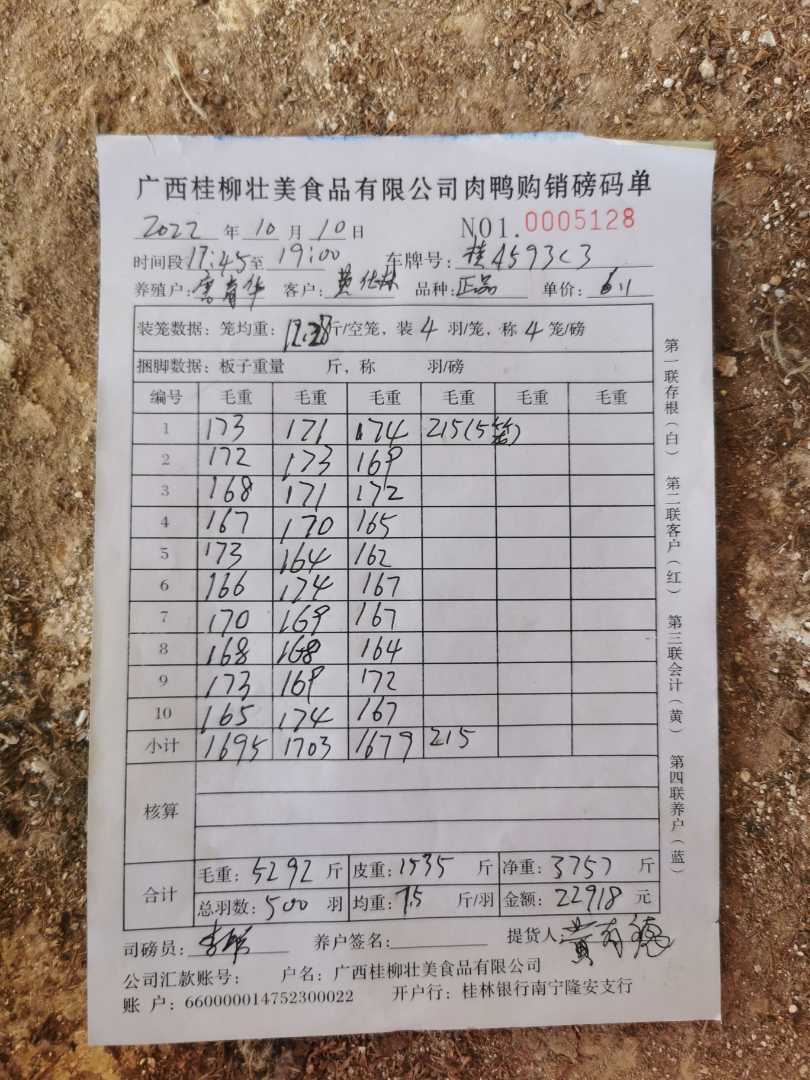 广西桂柳壮美食品有限公司肉鸭购销磅码单
2022 年 10 月 10 日 NO1. 0005128
时间段 17:45 至 19:00 车牌号: 桂4593C3
养殖户: 客户: 品种: 正品 单价: 6.1
装笼数据: 笼均重: 12.28 斤/空笼, 装 4 羽/笼, 称 4 笼/磅
捆脚数据: 板子重量 斤, 称 羽/磅
编号 毛重 毛重 毛重 毛重 毛重 毛重
1 173 171 174 215(5笼)
2 172 173 169
3 168 171 172
4 167 170 165
5 173 164 162
6 166 174 167
7 170 169 167
8 168 168 164
9 173 169 172
10 165 174 167
小计 1695 1703 1679 215
核算
合计 毛重: 5292 斤 皮重: 1535 斤 净重: 3757 斤
总羽数: 500 羽 均重: 7.5 斤/羽 金额: 22918 元
司磅员: 养户签名: 提货人: 黄有德
公司汇款账号: 户名: 广西桂柳壮美食品有限公司
账 户: 660000014752300022 开户行: 桂林银行南宁隆安支行
第一联存根(白) 第二联客户(红) 第三联会计(黄) 第四联养户(蓝)